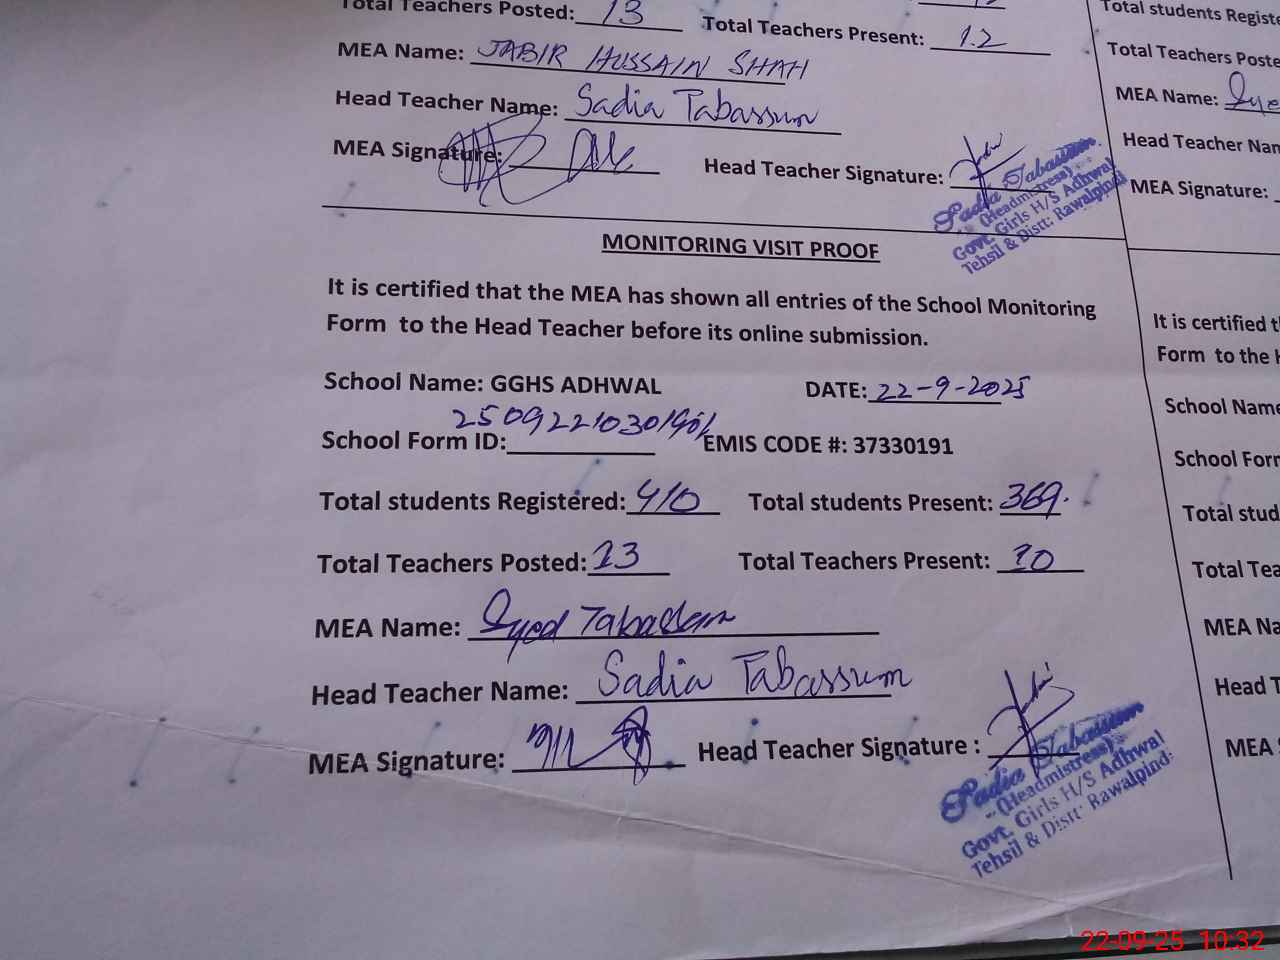 Total Teachers Posted: 13 Total Teachers Present: 12
MEA Name: JABIR HUSSAIN SHAH
Head Teacher Name: Sadia Tabassum
MEA Signature: Head Teacher Signature:
Sadia Tabassum
(Headmistress)
Govt. Girls H/S Adhwal
Tehsil & Distt: Rawalpindi
MONITORING VISIT PROOF
It is certified that the MEA has shown all entries of the School Monitoring
Form to the Head Teacher before its online submission.
School Name: GGHS ADHWAL DATE: 22-9-2025
School Form ID: EMIS CODE #: 37330191
Total students Registered: 410 Total students Present: 369.
Total Teachers Posted: 13 Total Teachers Present: 10
MEA Name: Syed
Head Teacher Name: Sadia Tabassum
MEA Signature: Head Teacher Signature :
Sadia Tabassum
(Headmistress)
Govt. Girls H/S Adhwal
Tehsil & Distt: Rawalpindi
Total students Registe
Total Teachers Poste
MEA Name: Sye
Head Teacher Nam
MEA Signature:
It is certified t
Form to the H
School Name
School Form
Total stud
Total Tea
MEA Na
Head T
MEA S
22-09-25 10:32